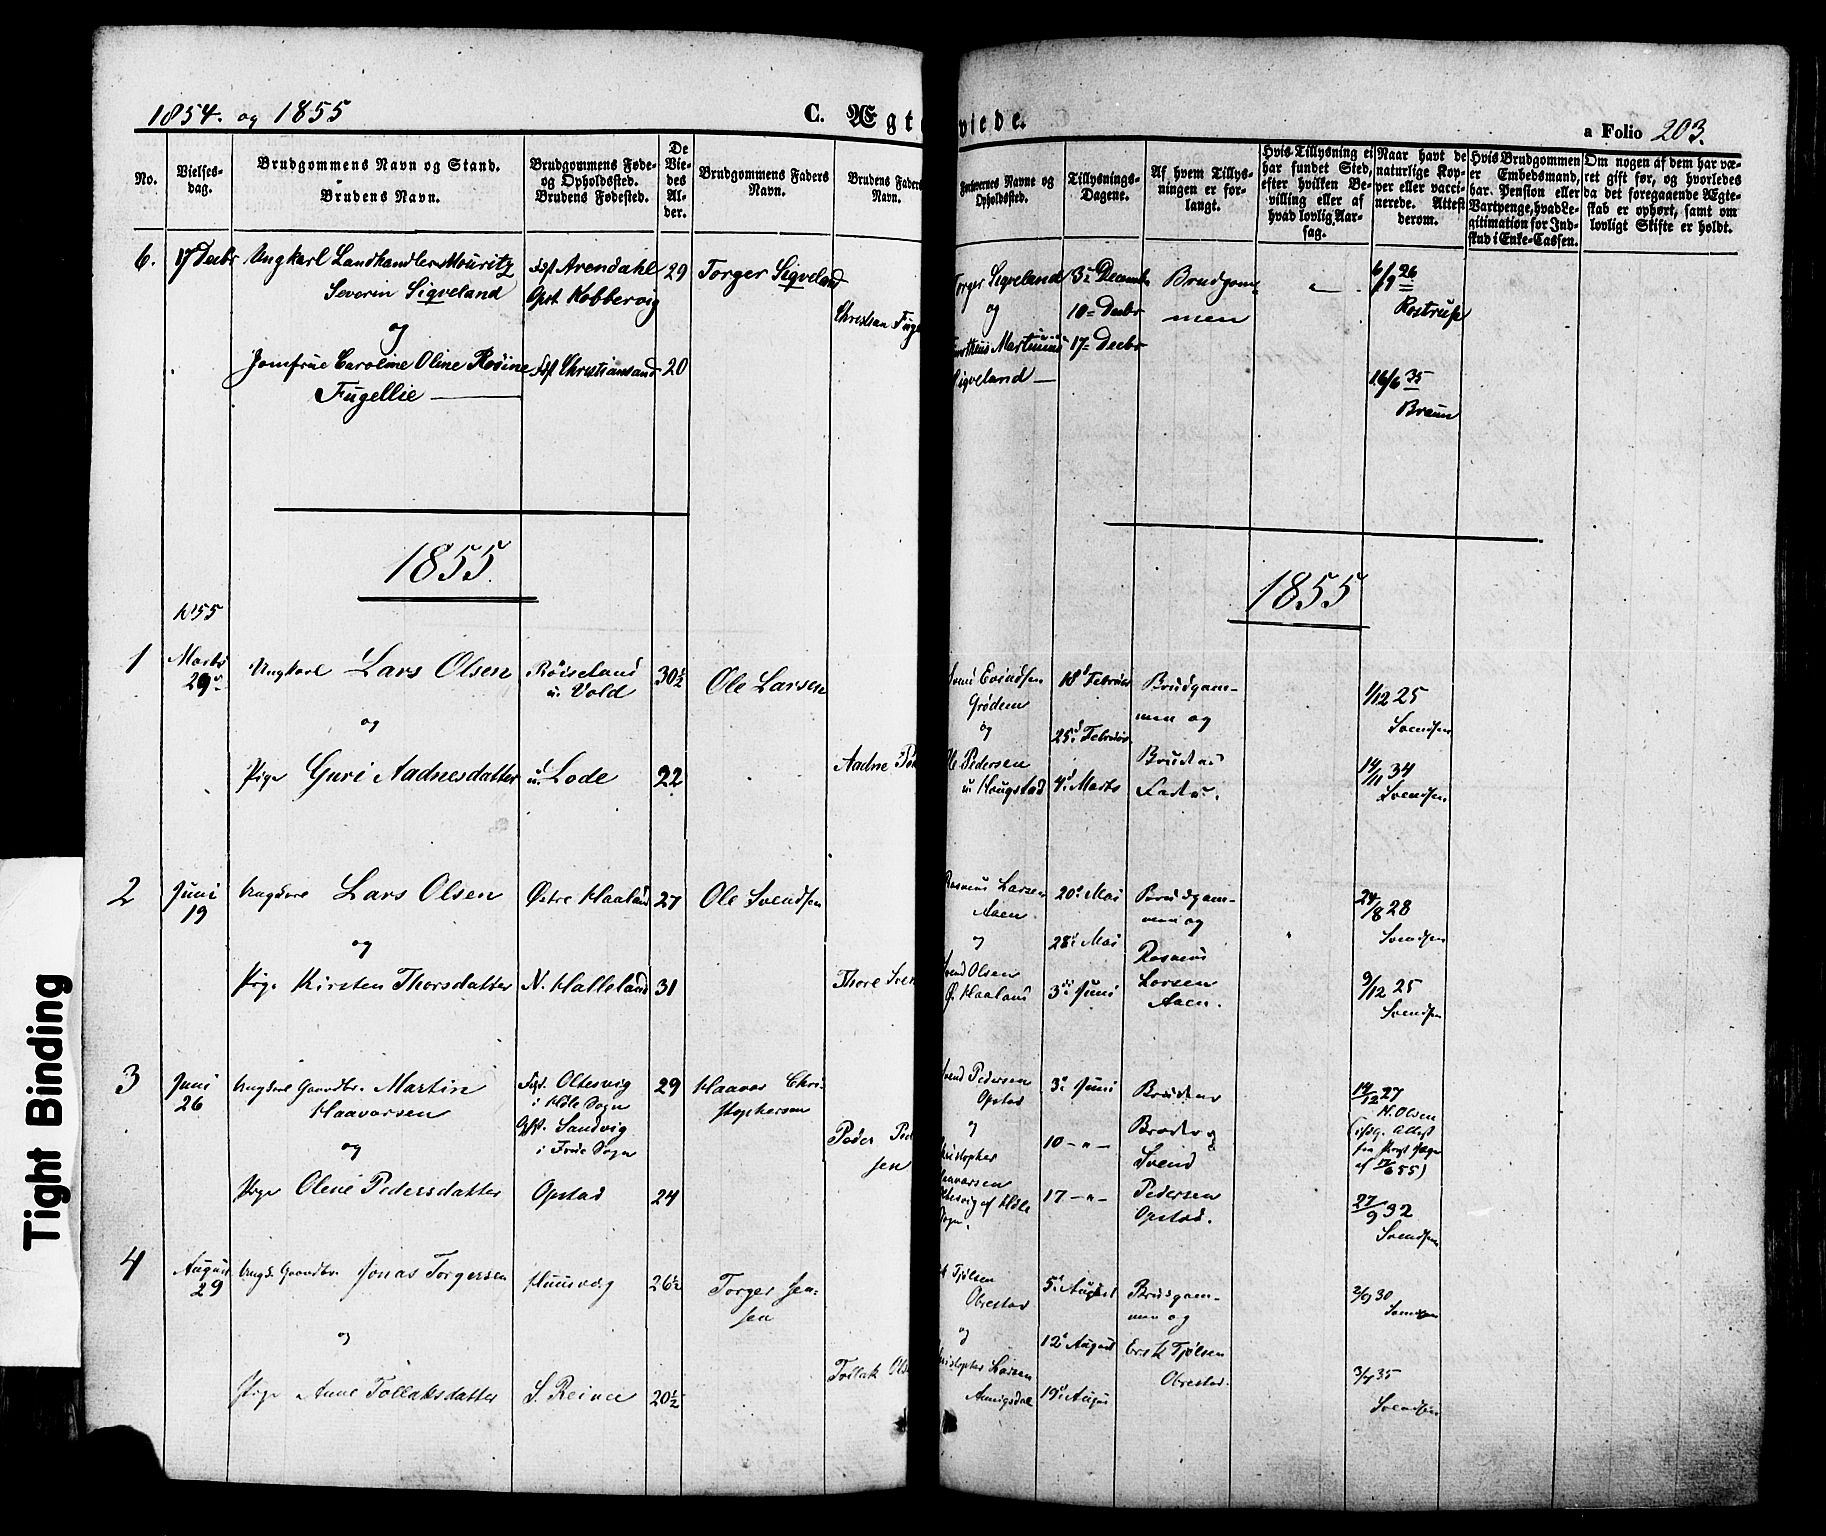 1854. og 1855
C. Ægte
viede.
a Folio 203.
No.
Vielses-
dag.
Brudgommens Navn og Stand.
Brudens Navn.
Brudgommens Føde-
og Opholdssted.
Brudens Fødested.
De
Vie-
des
Al-
der.
Brudgommens Faders
Navn.
Brudens Faders
Navn.
Forlovernes Navne og
Opholdssted.
Tillysnings-
Dagene.
Af hvem Tillys-
ningen er for-
langt.
Hvis Tillysning ei
har fundet Sted,
efter hvilken Be-
villing eller af
hvad lovlig Aar-
sag.
Naar havt de
naturlige Kop-
per eller vacci-
nerede. Attest
derom.
Hvis Brudgommen
er Embedsmand,
har Pension eller
Vartpenge, hvad Le-
gitimation for Ind-
skud i Enke-Cassen.
Om nogen af dem har væ-
ret gift før, og hvorledes
da det foregaaende Ægte-
skab er ophørt, samt om
lovligt Skifte er holdt.
6.
17 Decbr
Ungkarl Landhandler Mouritz
Severin Sigveland
og
Jomfrue Caroline Oline Rosine
Fugellie
Arendahl
Opst. Kobbervig
Christiansand
29
20
Torger Sigveland
Christian Fuge
Torger Sigveland
og
Martinius
Sigveland
3die Decemb
10de Decbr
17de Decbr
Brudgom-
men
6/9 26
Rostrup
16/6 35
Bruun
1855
1855
1855
1
Marts
29de
Ungkarl Lars Olsen
og
Pige Guri Aadnesdatter
Røiseland
u. Vold
u. Lode
30½
22
Ole Larsen
Aadne
Eivindsen
Grødem
og
Pedersen
u Haugstad
18d Februar
25d Februar
4d Marts
Brudgam-
men og
Brudens
Fader.
1/12 25
Svendsen
14/11 34
Svendsen
2
Juni
19
Ungkarl Lars Olsen
og
Pige Kirsten Thorsdatter
Østre Haaland
N. Halleland
27
31
Ole Svendsen
Thore Sven
Rasmus Larsen
Aaen.
og
Svend Olsen
Ø. Haaland
20d Mai
28d Mai
3die Juni
Brudgam-
men og
Rasmus
Larsen
Aaen.
24/8 28
Svendsen
9/12 25
Svendsen
3
Juni
26
Ungkarl Gaardbr. Martin
Haavarsen
og
Pige Olene Pedersdatter
Fød. Oltesvig
i Höle Sogn
Opst. Sandvig
i Frue Sogn
Opstad
29
24
Haavar Chri-
stophersen
Peder Ped
sen
Svend Pedersen
Opstad
og
Christopher
Haavarsen
Oltesvig af Höle
Sogn.
3die Juni
10 - " -
17 - " -
Brudens
Broder
Svend
Pedersen
Opstad.
14/12 27
H. Olsen
(ifølg. Attest
fra
af 55)
27/9 32
Svendsen
4
August
29
Ungk. Gaardbr. Jonas Torgersen
og
Pige Anne Tollaksdatter
Huusvig
S. Reime
26½
20½
Torger Jen-
sen
Tollak Ols
Tjølsen
Obrestad
og
Christopher Larsen
Auuigsdal
5te August
12d August
19d August
Brudgam-
men og
Erik Tjølsen
Obrestad.
2/9 30
Svendsen
3/7 35
Svendsen
Tight Binding